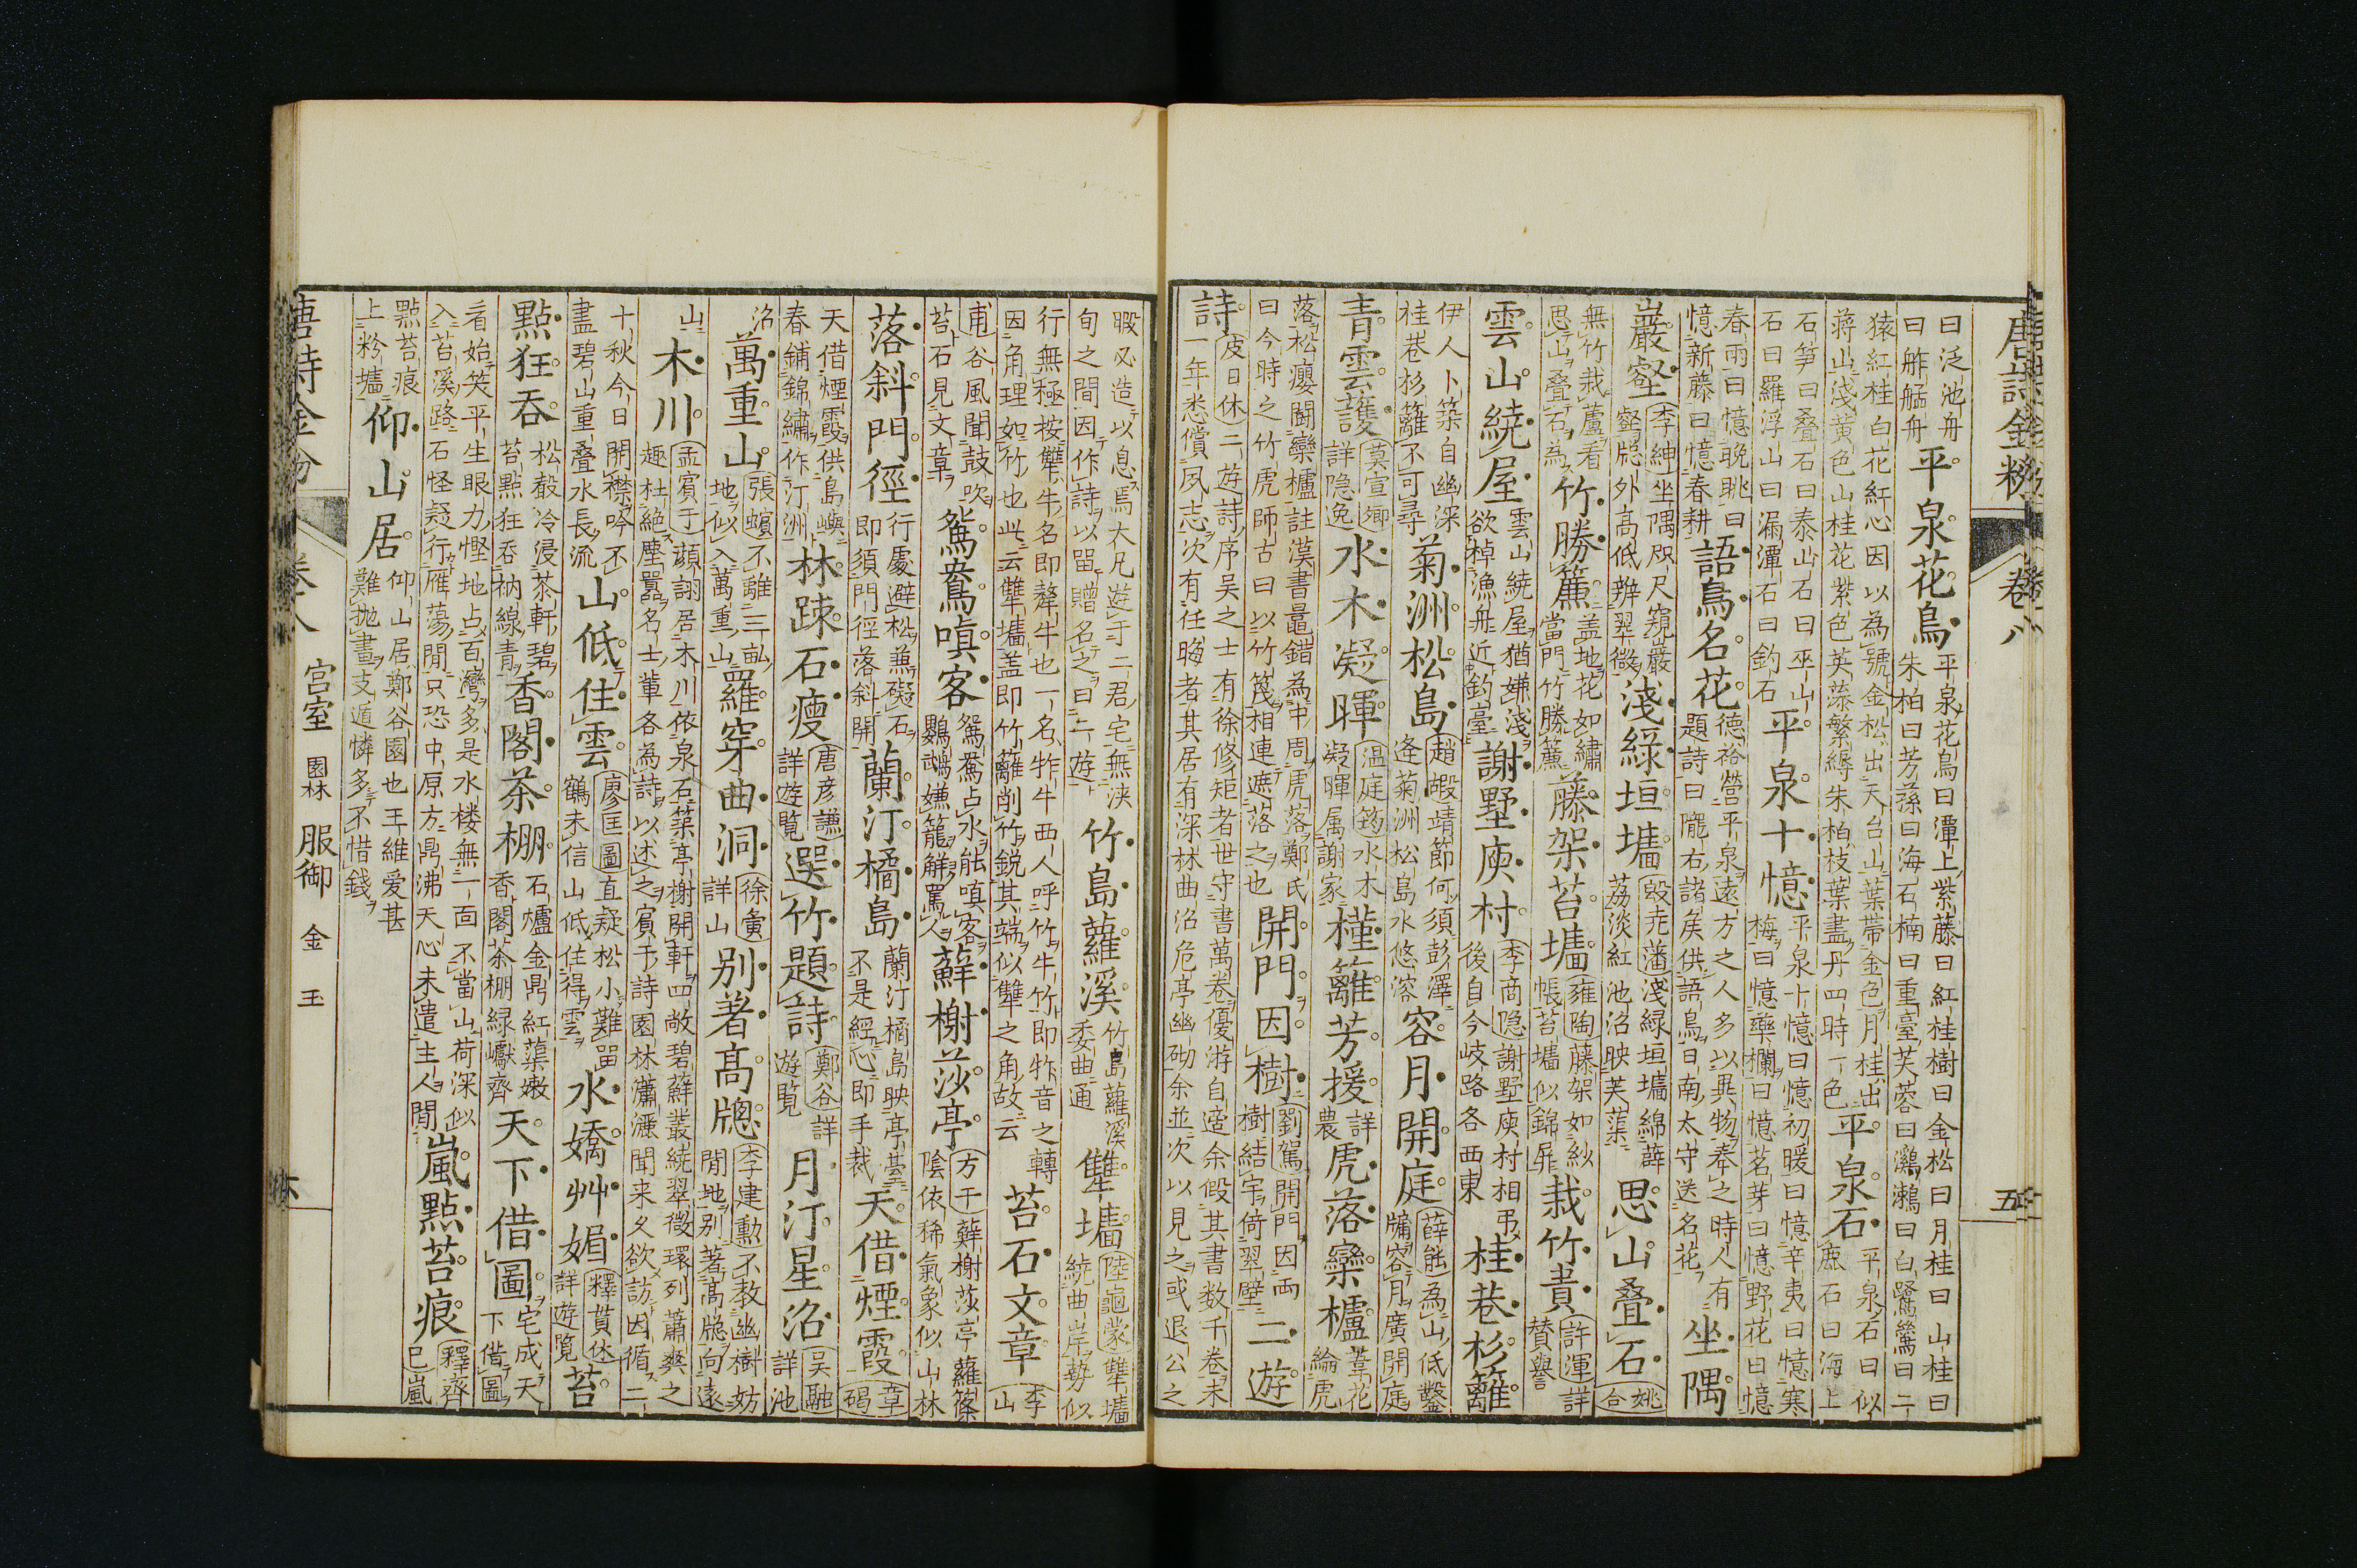 唐詩金粉 卷八 五
曰泛池舟
曰舴艋舟
平泉花鳥
平泉花鳥曰潭上紫藤曰紅桂樹曰金松曰月桂曰山桂曰
朱柏曰芳蓀曰海石楠曰重臺芙蓉曰鸂鶒曰白鷺鷥曰二
猿紅桂白花紅心因以為號金松出天台山葉帶金色月桂出
蒋山淺黄色山桂花紫色英藻繁縟朱柏枝葉盡丹四時一色
平泉石
平泉石曰似
鹿石曰海上
石笋曰叠石曰泰山石曰巫山
石曰羅浮山曰漏潭石曰釣石
平泉十憶
平泉十憶曰憶初暖曰憶辛夷曰憶寒
梅曰憶藥欄曰憶茗芽曰憶野花曰憶
春雨曰憶晚眺曰
憶新藤曰憶春耕
語鳥名花
德裕營平泉遠方之人多以異物奉之時人有
題詩曰隴右諸矦供語鳥日南太守送名花
坐隅
巖壑
李紳坐隅咫尺窺巖
壑牕外高低辨翠微
淺綠垣墻
殷尭藩淺緑垣墻綿薜
荔淡紅池沼映芙蕖
思山叠石
姚合
無竹栽蘆看
思山叠石為
竹勝簾
盖地花如繡
當門竹勝簾
藤架苔墻
雍陶藤架如紗
帳苔墻似錦屏
栽竹貴
許渾詳
賛譽
雲山繞屋
雲山繞屋猶嫌淺
欲棹漁舟近釣臺
謝墅庾村
李商隐謝墅庾村相弔
後自今岐路各西東
桂巷杉籬
伊人卜築自幽深
桂巷杉籬不可尋
菊洲松島
趙嘏靖節何須彭澤
逄菊洲松島水悠溶
容月開庭
薛能為山低鑿
牗容月廣開庭
青雲䕶
莫宣卿
詳隐逸
水木凝暉
温庭筠水木
凝暉属謝家
槿籬芳援
詳
農
虎落欒櫨
葦花
綸虎
落松癭閗欒櫨註漢書鼂錯為中周虎落鄭氏
曰今時之竹虎師古曰以竹篾相連遮落之也
開門因樹
劉駕開門因兩
樹結宇倚翠壁
二遊
詩
皮日休二遊詩序吴之士有徐修矩者世守書萬卷優游自適余假其書数千卷未
一年悉償夙志次有任晦者其居有深林曲沼危亭幽砌余並次以見之或退公之
暇必造以息焉大凡遊于二君宅無浹
旬之間因作詩以畱贈名之曰二遊
竹島蘿溪
竹島蘿溪
委曲通
犨墻
陸龜蒙犨墻
統曲岸勢似
行無極按犨牛名即犛牛也一名㸲牛西人呼竹牛竹即㸲音之轉
因角理如竹也此云犨墻盖即竹籬削竹鋭其端似犨之角故云
苔石文章
李
山
甫谷風聞鼓吹
苔石見文章
鴛鴦嗔客
鴛鴦占水能嗔客
鸚鵡嫌籠解罵人
蘚榭莎亭
方干蘚榭莎亭蘿篠
陰依稀氣象似山林
落斜門徑
行處避松蕪礙石
即須門徑落斜開
蘭汀橘島
蘭汀橘島映亭臺
不是經心即手裁
天借煙霞
章
碣
天借煙霞供島嶼
春鋪錦繡作汀洲
林踈石瘦
唐彦謙
詳遊覽
選竹題詩
鄭谷詳
遊覽
月汀星沼
吴融
詳池
沼
萬重山
張蠙不離三畝
地似入萬重山
羅穿曲洞
徐夤
詳山
别著高牕
李建勲不教幽樹妨
閒地别著髙牕向遠
山
木川
孟賓于蕑詡居木川依泉石築亭榭開軒四敞碧蘚叢繞翠微環列蕭爽之
趣杜絶塵嚣名士輩各為詩以述之賓于詩園林瀟灑聞来久欲訪因循二
十秋今日開襟吟不
盡碧山重叠水長流
山低住雲
廖匡圖直疑松小難畱
鶴未信山低住得雲
水嬌艸媚
釋貫休
詳遊覽
苔
點狂吞
松㲉冷浸茶軒碧
苔點狂吞衲線青
香閣茶棚
石爐金鼎紅蕖嫩
香閣茶棚緑巘齊
天下借圖
宅成天
下借圖
看始笑平生眼力慳地占百灣多是水楼無一面不當山荷深似
入苔溪路石怪疑行雁蕩閒只恐中原方鼎沸天心未遣主人閒
嵐點苔痕
釋齊
已嵐
點苔痕
上粉墻
仰山居
仰山居鄭谷園也王維爱甚
難抛畫支遁憐多不惜錢
唐詩金粉 卷八 宫室 園林 服御 金 玉 六